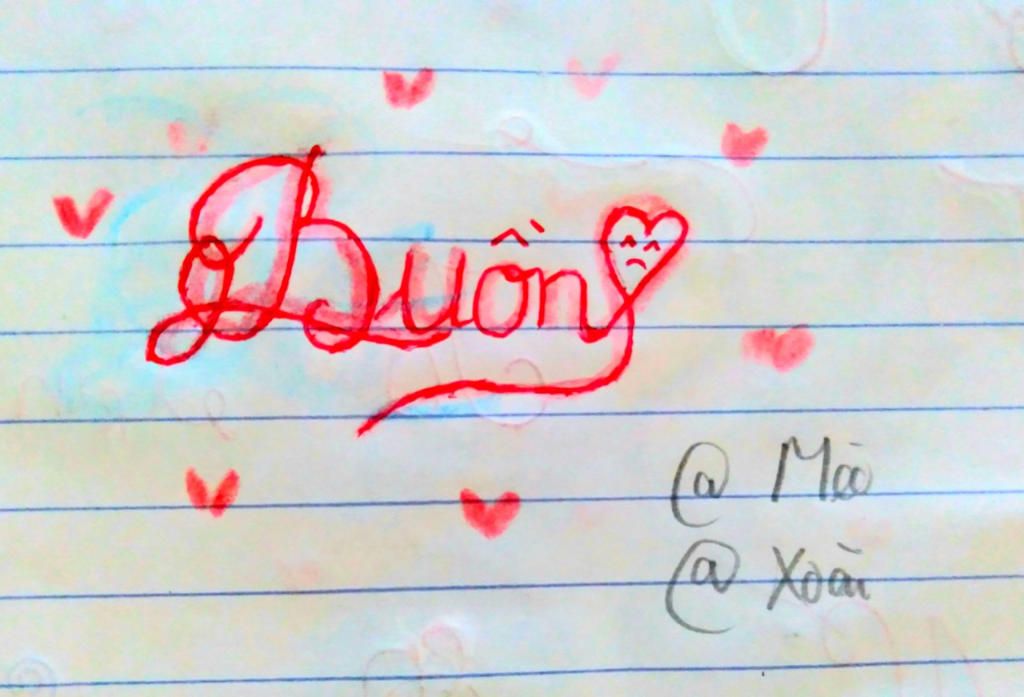 Buồn
@ Mèo
@ Xoài